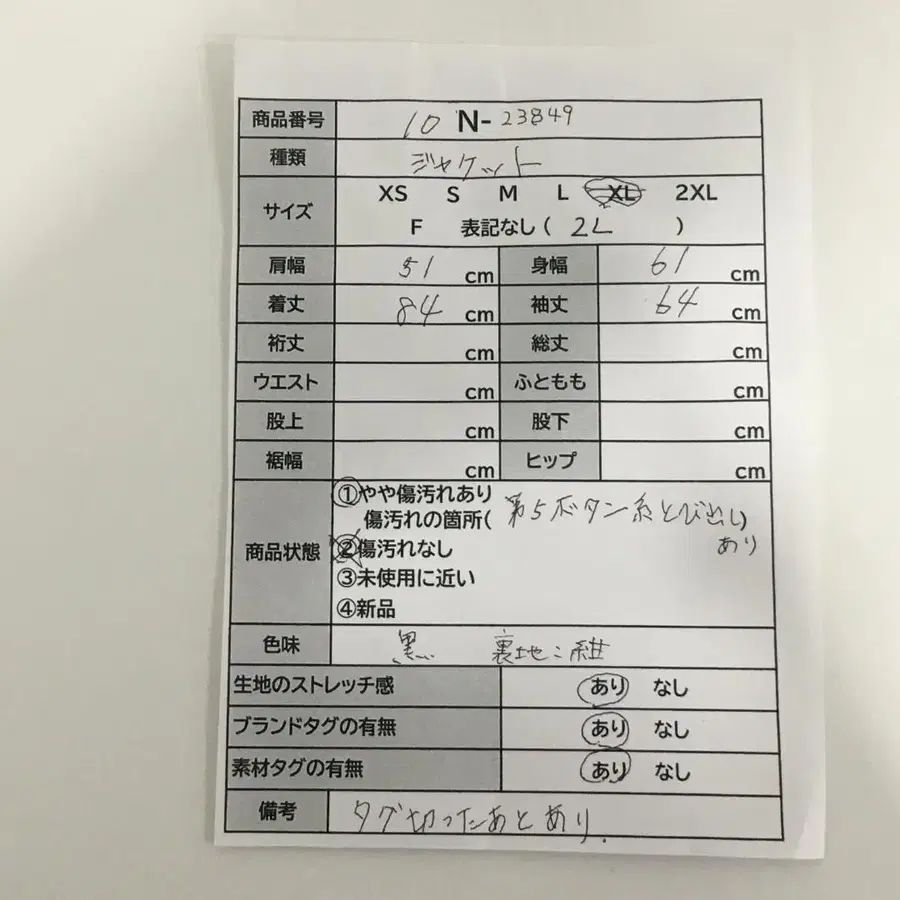 商品番号 10 N-23849
種類 ジャケット
サイズ XS S M L XL 2XL
F 表記なし ( 2L )
肩幅 51 cm 身幅 61 cm
着丈 84 cm 袖丈 64 cm
裄丈 cm 総丈 cm
ウエスト cm ふともも cm
股上 cm 股下 cm
裾幅 cm ヒップ cm
商品状態 ①やや傷汚れあり
傷汚れの箇所( 第5ボタン糸とび出し)
あり
②傷汚れなし
③未使用に近い
④新品
色味 黒 裏地:紺
生地のストレッチ感 あり なし
ブランドタグの有無 あり なし
素材タグの有無 あり なし
備考 タグ切ったあとあり.